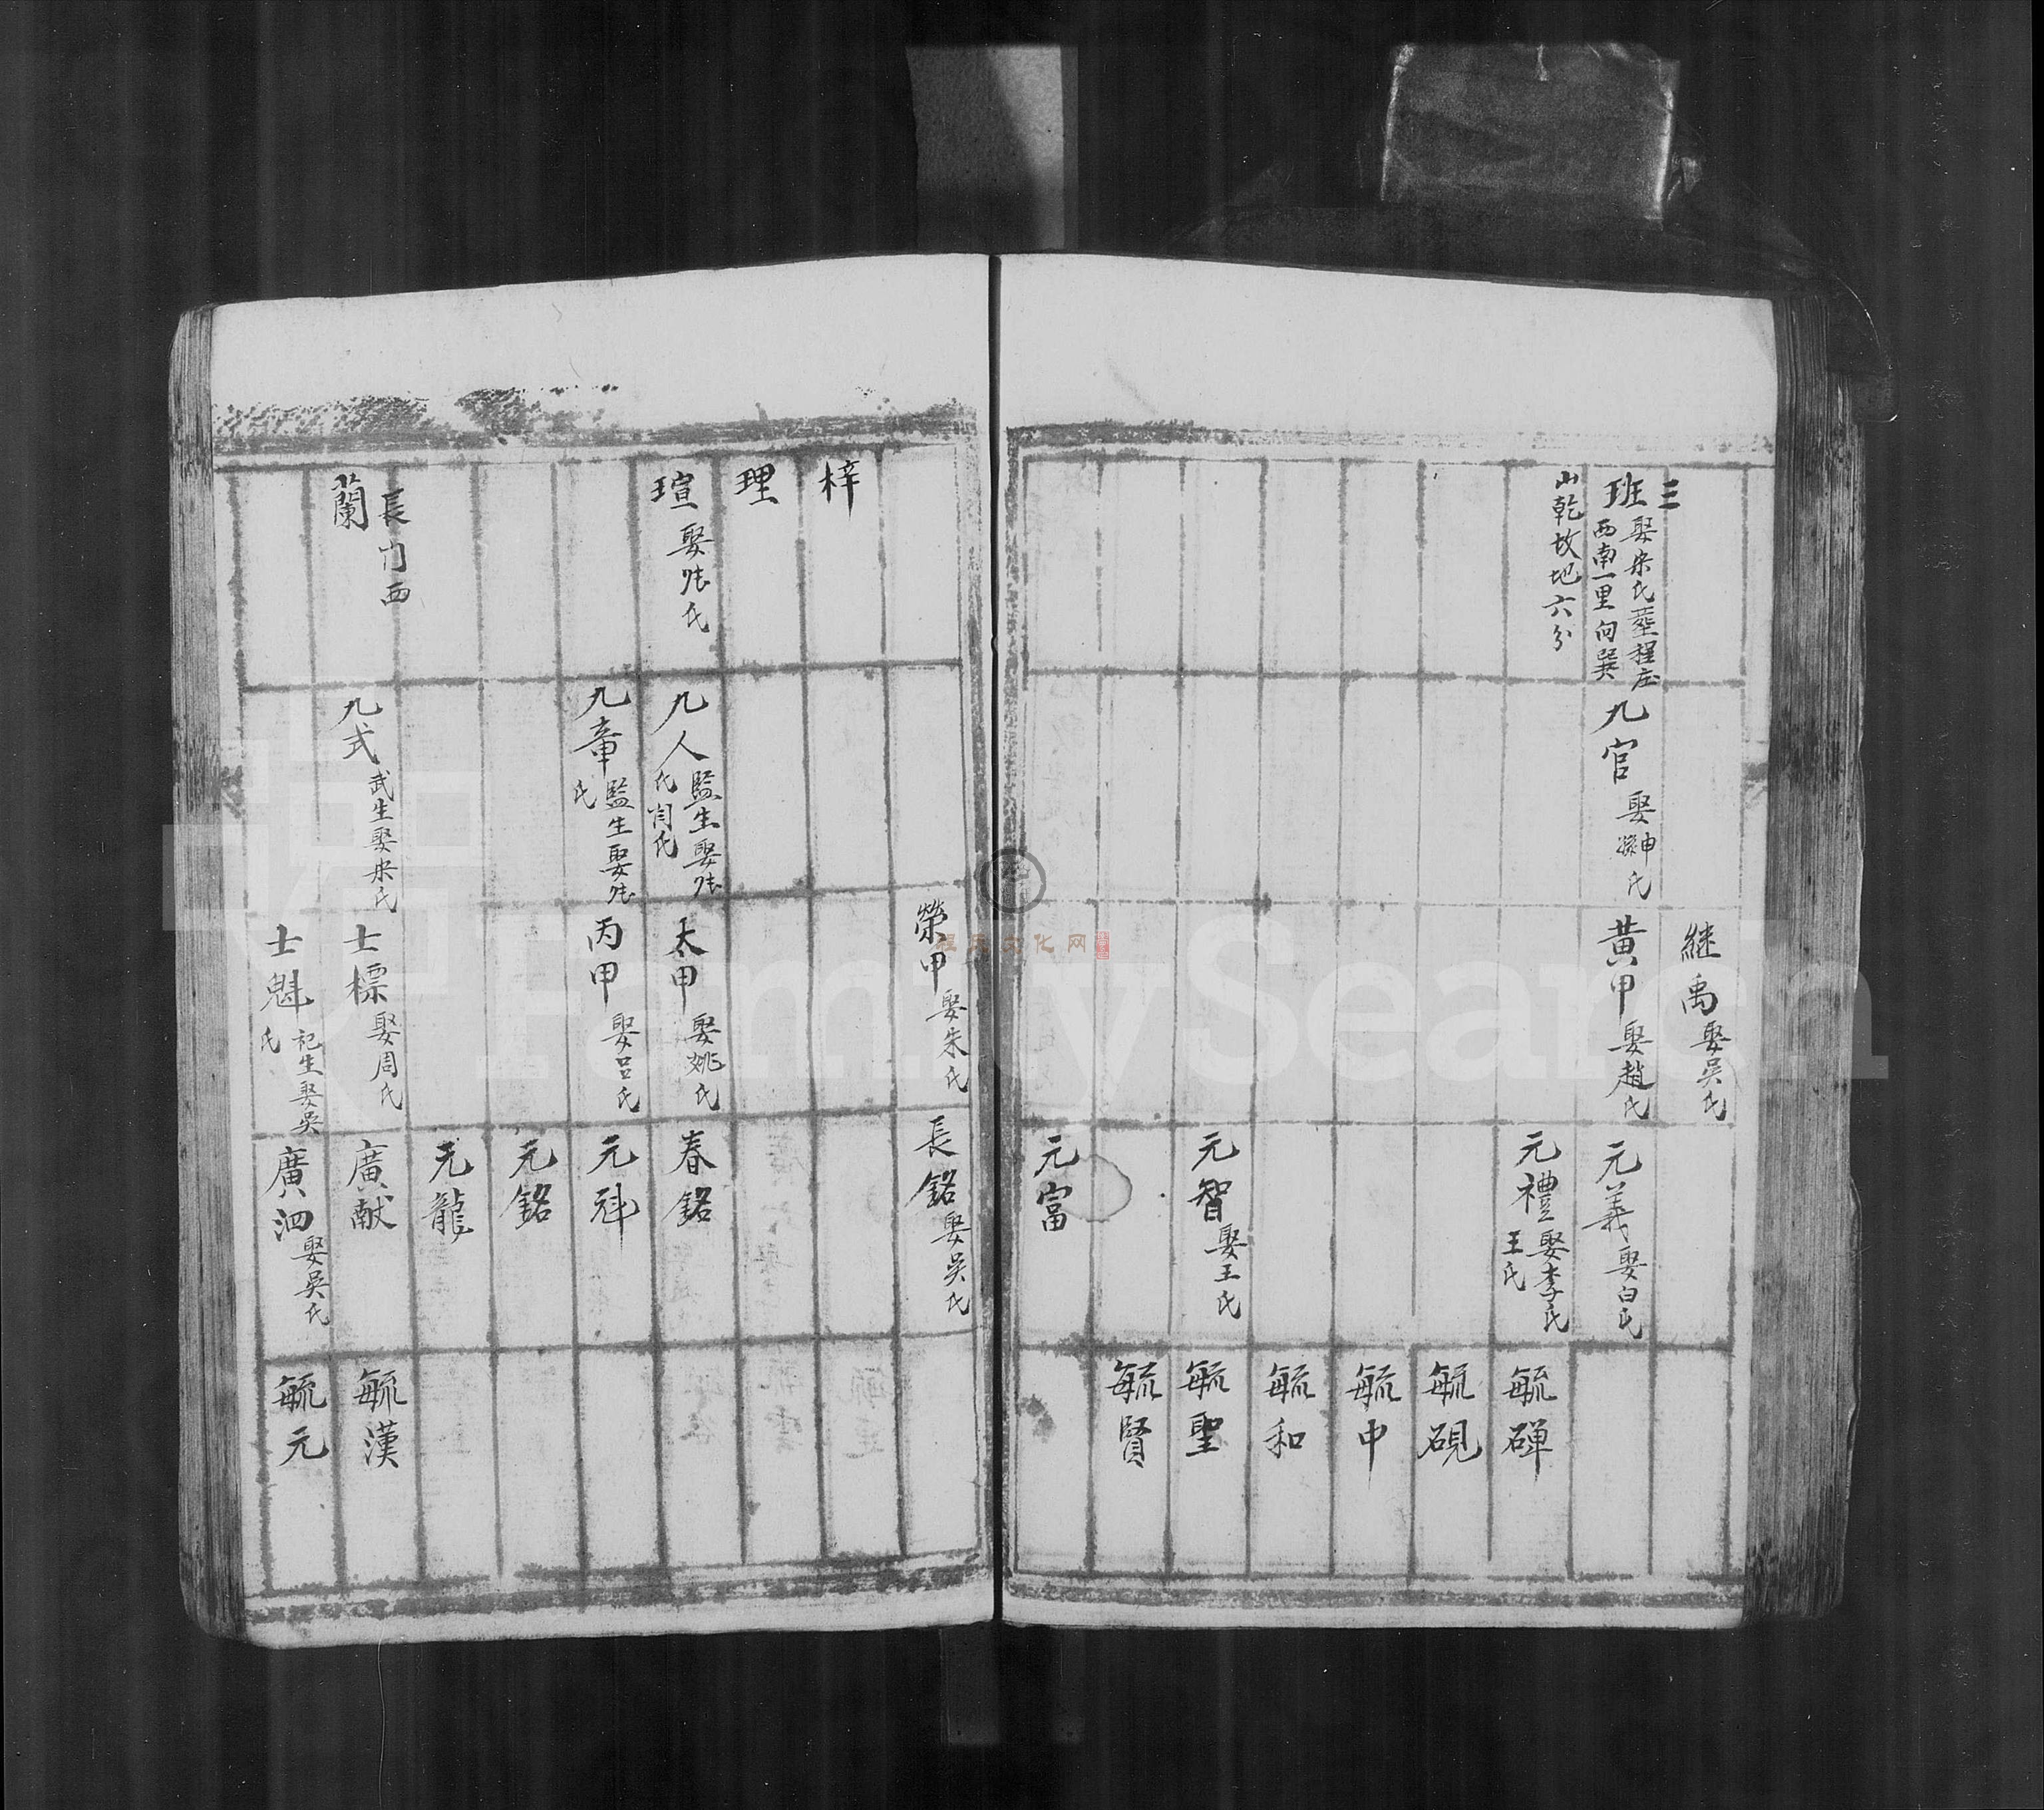 三
班 娶宋氏塟程庄
西南一里向巽
山乾坟地六分
九官 娶孫申氏
继禹 娶吳氏
黃甲 娶趙氏
元義 娶白氏
元禮 娶李氏
王氏
元智 娶王氏
元富
毓磾
毓硯
毓中
毓和
毓聖
毓賢
梓
理
瑄 娶張氏
長門西
蘭
九人 監生娶張
氏肖氏
九章 監生娶張
氏
九式 武生娶宋氏
榮甲 娶朱氏
太甲 娶姚氏
丙甲 娶呂氏
士標 娶周氏
士魁 祀生娶吳
氏
長銘 娶吳氏
春銘
元魁
元銘
元龍
廣献
廣泗 娶吳氏
毓漢
毓元
程氏文化网
FamilySearch